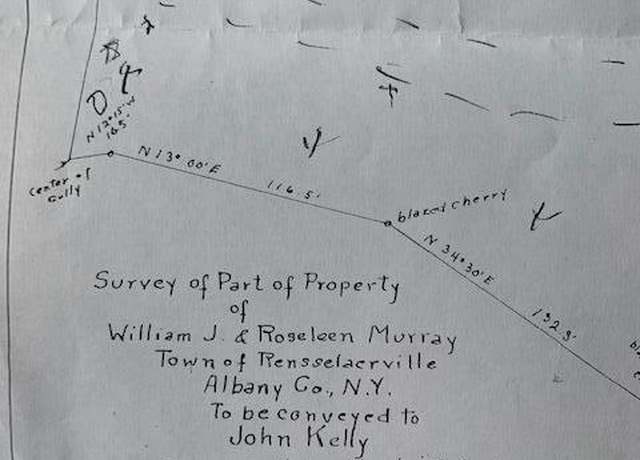 N 12° 15' W
16.5'
center of
Gully
N 13° 00' E
116.5'
blazed cherry
N 34° 30' E
132.9'
Survey of Part of Property
of
William J. & Roseleen Murray
Town of Rensselaerville
Albany Co., N.Y.
To be conveyed to
John Kelly